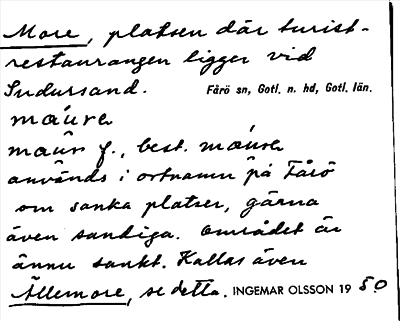 More, platsen där turist-
restaurangen ligger vid
Sudersand. Fårö sn, Gotl. n. hd, Gotl. län.
mäure
maur f., best. mäure
används i ortnamn på Fårö
om sanka platser, gärna
även sandiga. Området är
ännu sankt. Kallas även
Ällemore, se detta. INGEMAR OLSSON 1950